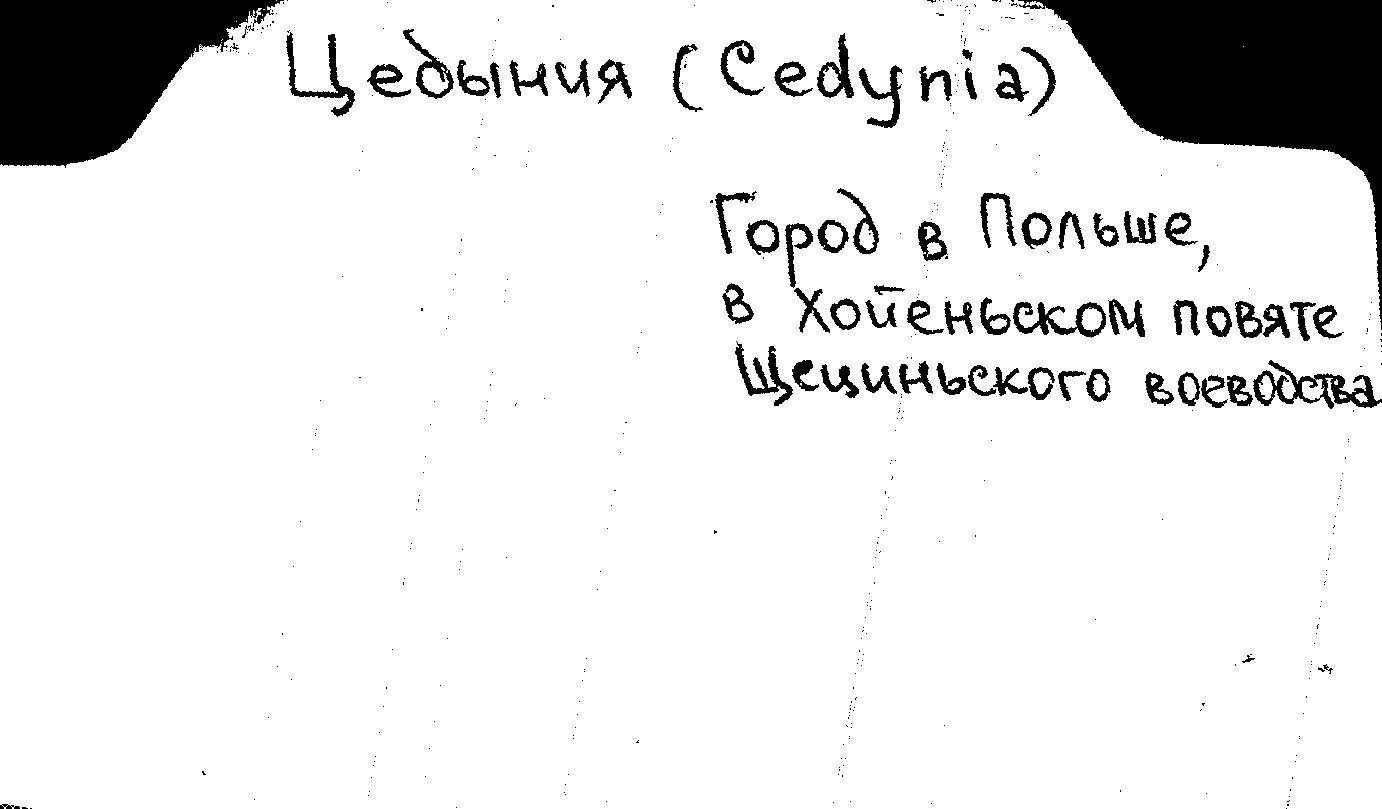 Цедыния (Cedynia)
Город в Польше,
в Хойеньском повяте
Щециньского воеводства